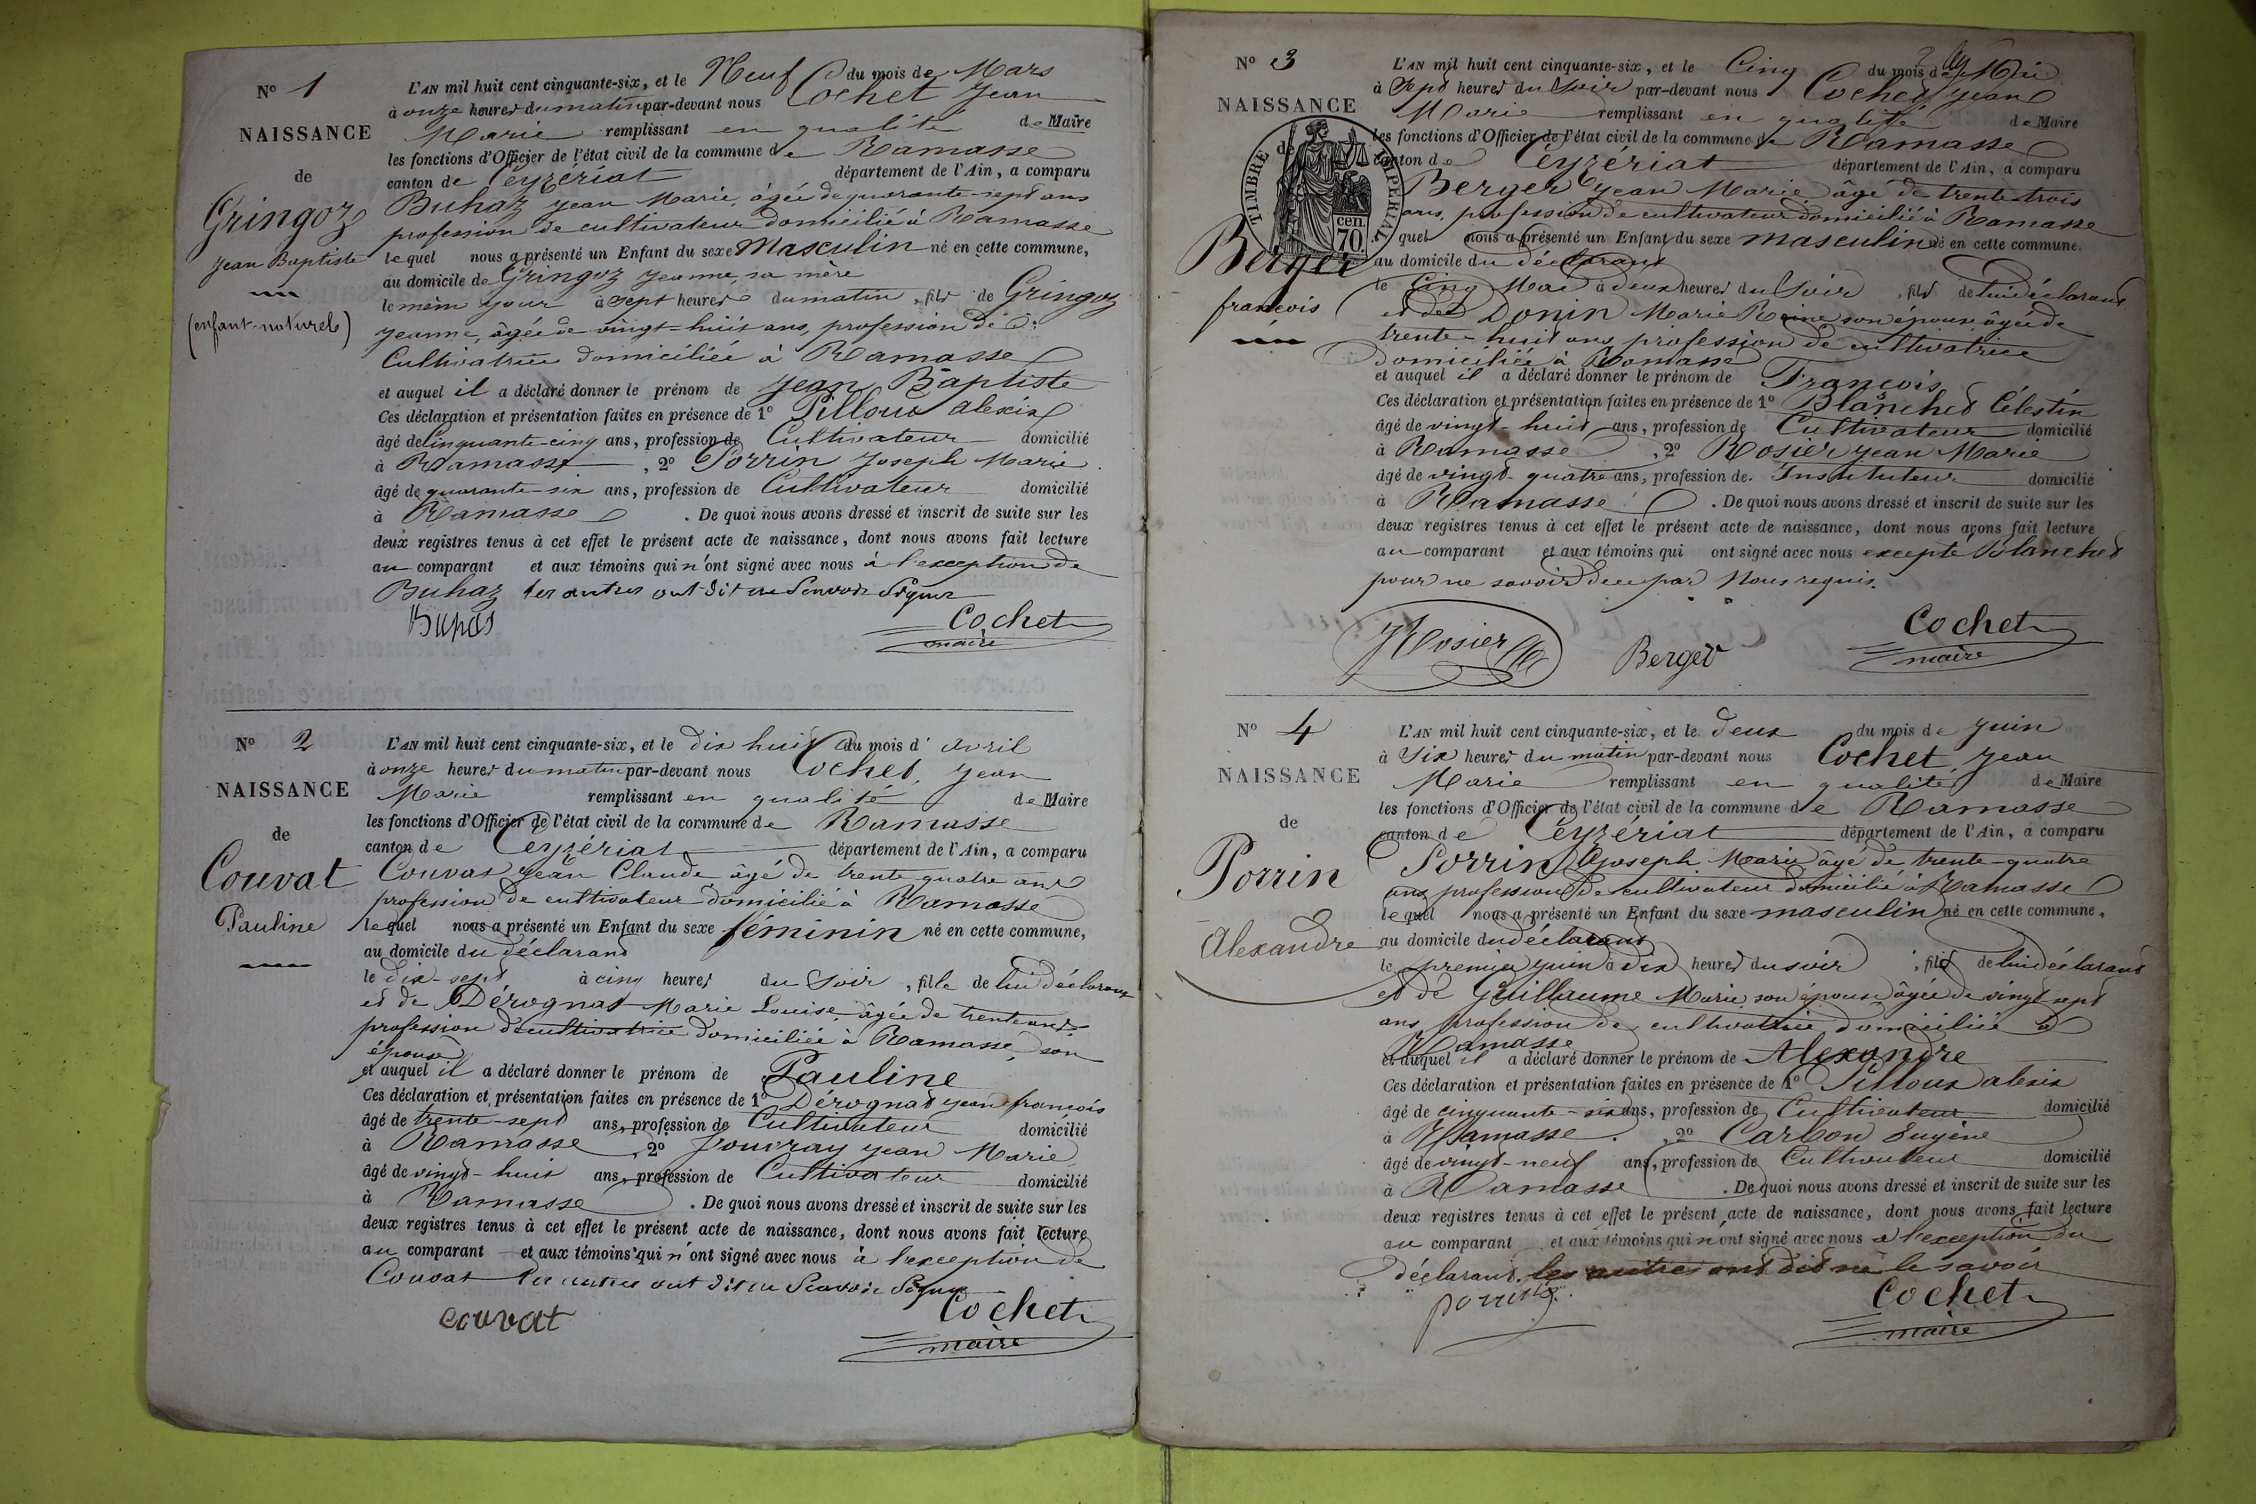 N° 1
NAISSANCE
de
Gringoz
Jean Baptiste
(enfant naturel)
L'AN mil huit cent cinquante-six, et le Neuf du mois de Mars
à onze heures du matin par-devant nous Cochet Jean
Marie remplissant en qualité de Maire
les fonctions d'Officier de l'état civil de la commune de Ramasse
canton de Ceyzériat département de l'Ain, a comparu
Buhaz Jean Marie, âgée de quarante-sept ans
profession de cultivateur domicilié à Ramasse
lequel nous a présenté un Enfant du sexe Masculin né en cette commune,
au domicile de Gringoz Jeanne, sa mère
le mêm jour à sept heures du matin, fils de Gringoz
Jeanne, âgée de vingt-huit ans, profession de
Cultivatrice domiciliée à Ramasse
et auquel il a déclaré donner le prénom de Jean Baptiste
Ces déclaration et présentation faites en présence de 1° Pilloux alexis
âgé de Cinquante-cinq ans, profession de Cultivateur domicilié
à Ramasse, 2° Porrin Joseph Marie
âgé de quarante-six ans, profession de Cultivateur domicilié
à Ramasse. De quoi nous avons dressé et inscrit de suite sur les
deux registres tenus à cet effet le présent acte de naissance, dont nous avons fait lecture
au comparant et aux témoins qui n'ont signé avec nous à l'exception de
Buhaz les autres ont dit ne Scavoir Signer
Cochet
maire
N° 2
NAISSANCE
de
Couvat
Pauline
L'AN mil huit cent cinquante-six, et le dix huit du mois d'avril
à onze heures du matin par-devant nous Cochet, Jean
Marie remplissant en qualité de Maire
les fonctions d'Officier de l'état civil de la commune de Ramasse
canton de Ceyzériat département de l'Ain, a comparu
Couvat Jean Claude âgé de trente quatre ans
profession de cultivateur domicilié à Ramasse
lequel nous a présenté un Enfant du sexe féminin né en cette commune,
au domicile du déclarant
le dix-sept à cinq heures du Soir, fille de lui déclarant
et de Dérognat Marie Louise âgée de trente ans
profession de cultivatrice domiciliée à Ramasse, son
épouse
et auquel il a déclaré donner le prénom de Pauline
Ces déclaration et présentation faites en présence de 1° Dérognat Jean françois
âgé de trente-sept ans, profession de Cultivateur domicilié
à Ramasse, 2° Jouvray Jean Marie
âgé de vingt-huit ans, profession de Cultivateur domicilié
à Ramasse. De quoi nous avons dressé et inscrit de suite sur les
deux registres tenus à cet effet le présent acte de naissance, dont nous avons fait lecture
au comparant et aux témoins qui n'ont signé avec nous à l'exception de
Couvat les autres ont dit ne Scavoir Signer
couvat
Cochet
maire
N° 3
NAISSANCE
de
TIMBRE IMPERIAL
cen.
70
Berger
françois
L'AN mil huit cent cinquante-six, et le Cinq du mois de Mai
à Sept heures du Soir par-devant nous Cochet, Jean
Marie remplissant en qualité de Maire
les fonctions d'Officier de l'état civil de la commune de Ramasse
canton de Ceyzériat département de l'Ain, a comparu
Berger Jean Marie, âgé de trente-trois
ans, profession de cultivateur domicilié à Ramasse
quel nous a présenté un Enfant du sexe masculin né en cette commune.
au domicile du déclarant
le Cinq Mai à deux heures du Soir, fils de lui déclarant
et de Donin Marie Reine son épouse, âgée de
trente-huit ans profession de cultivatrice
domiciliée à Ramasse
et auquel il a déclaré donner le prénom de François
Ces déclaration et présentation faites en présence de 1° Blanchet Célestin
âgé de vingt-huit ans, profession de Cultivateur domicilié
à Ramasse, 2° Rosier Jean Marie
âgé de vingt-quatre ans, profession de Instituteur domicilié
à Ramasse. De quoi nous avons dressé et inscrit de suite sur les
deux registres tenus à cet effet le présent acte de naissance, dont nous avons fait lecture
au comparant et aux témoins qui ont signé avec nous excepté Blanchet
pour ne savoir de ce par Nous requis.
Rosier
Berger
Cochet
maire
N° 4
NAISSANCE
de
Porrin
Alexandre
L'AN mil huit cent cinquante-six, et le deux du mois de Juin
à Six heures du matin par-devant nous Cochet, Jean
Marie remplissant en qualité de Maire
les fonctions d'Officier de l'état civil de la commune de Ramasse
canton de Ceyzériat département de l'Ain, a comparu
Porrin Joseph Marie âgé de trente-quatre
ans profession de cultivateur domicilié à Ramasse
lequel nous a présenté un Enfant du sexe masculin né en cette commune,
au domicile du déclarant
le premier juin à dix heures du soir, fils de lui déclarant
et de Guillaume Marie son épouse âgée de vingt sept
ans profession de cultivatrice domiciliée à
Ramasse
et auquel il a déclaré donner le prénom de Alexandre
Ces déclaration et présentation faites en présence de 1° Pilloux alexis
âgé de cinquante-six ans, profession de Cultivateur domicilié
à Ramasse, 2° Carbon Eugène
âgé de vingt-neuf ans, profession de Cultivateur domicilié
à Ramasse. De quoi nous avons dressé et inscrit de suite sur les
deux registres tenus à cet effet le présent acte de naissance, dont nous avons fait lecture
au comparant et aux témoins qui n'ont signé avec nous à l'exception du
déclarant. les autres ont dit ne le savoir
porrin
Cochet
maire